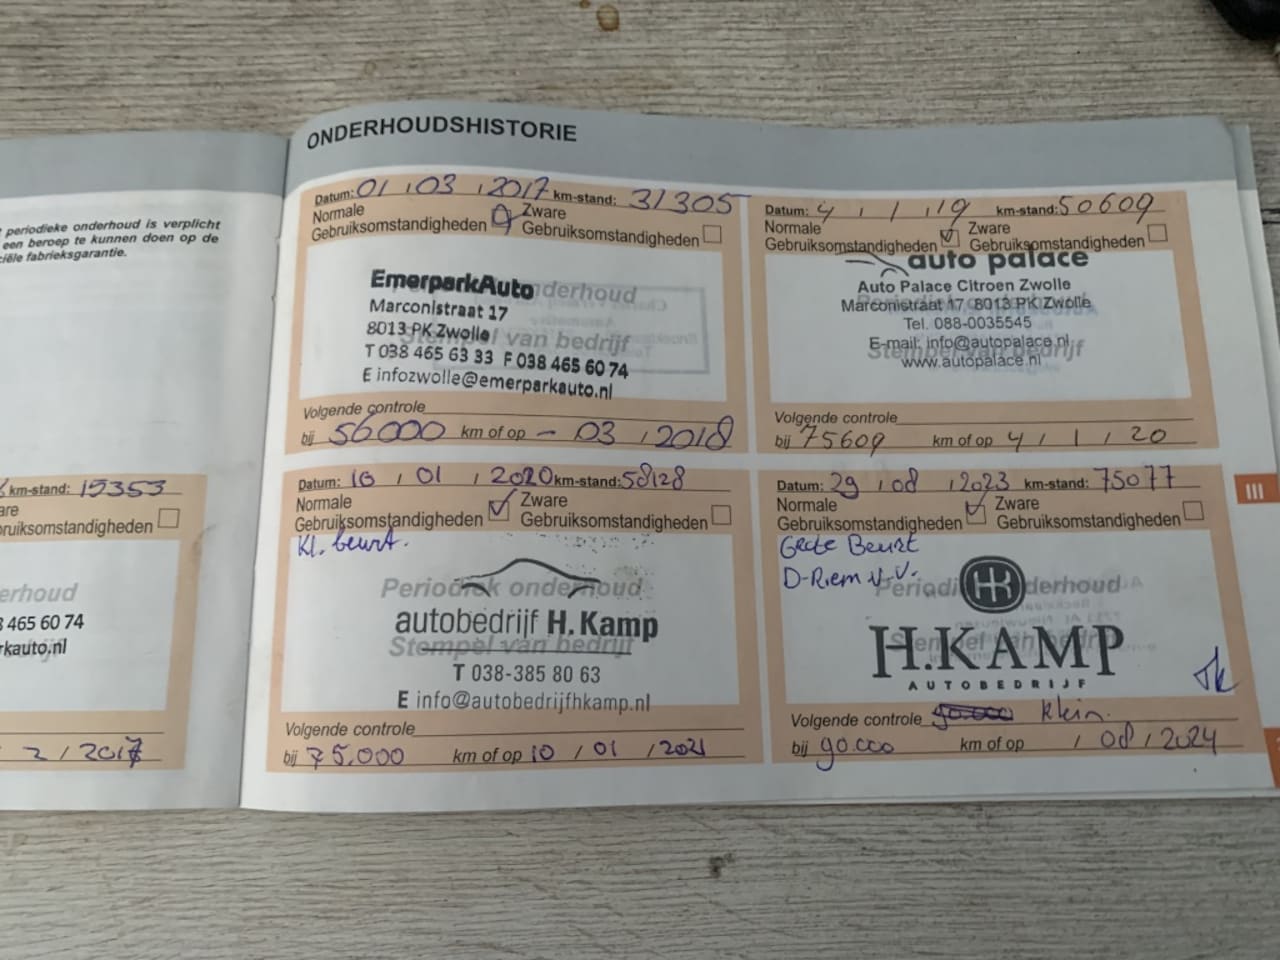 ONDERHOUDSHISTORIE
periodieke onderhoud is verplicht
een beroep te kunnen doen op de
ciële fabrieksgarantie.
km-stand: 15353
are
ruiksomstandigheden
erhoud
465 60 74
rkauto.nl
2 / 2017
Datum: 01 / 03 / 2017 km-stand: 31305
Normale Zware
Gebruiksomstandigheden Gebruiksomstandigheden
Periodiek onderhoud
Stempel van bedrijf
EmerparkAuto
Marconistraat 17
8013 PK Zwolle
T 038 465 63 33 F 038 465 60 74
E infozwolle@emerparkauto.nl
Volgende controle
bij 56000 km of op - 03 / 2018
Datum: 4 / 1 / 19 km-stand: 50609
Normale Zware
Gebruiksomstandigheden Gebruiksomstandigheden
auto palace
Auto Palace Citroen Zwolle
Marconistraat 17 8013 PK Zwolle
Tel. 088-0035545
E-mail: info@autopalace.nl
Stempel van bedrijf
www.autopalace.nl
Volgende controle
bij 75609 km of op 4 / 1 / 20
Datum: 10 / 01 / 2020 km-stand: 58128
Normale Zware
Gebruiksomstandigheden Gebruiksomstandigheden
Kl. beurt.
Periodiek onderhoud
autobedrijf H. Kamp
Stempel van bedrijf
T 038-385 80 63
E info@autobedrijfhkamp.nl
Volgende controle
bij 75.000 km of op 10 / 01 / 2021
Datum: 29 / 08 / 2023 km-stand: 75077
Normale Zware
Gebruiksomstandigheden Gebruiksomstandigheden
Grote Beurt
D-Riem V.V.
Periodiek onderhoud
HK
Stempel van bedrijf
H.KAMP
AUTOBEDRIJF
Volgende controle klein.
bij 90.000 km of op / 08 / 2024
III